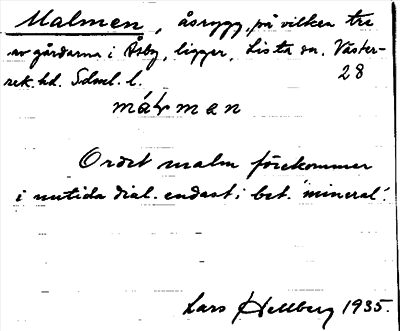 Malmen, åsrygg, på vilken tre
av gårdarna i Åsby, ligger, Lista sn. Väster-
rek. hd. Sdml. l. 28
málman
Ordet malm förekommer
i nutida dial. endast i bet. 'mineral'.
Lars Hellberg 1935.